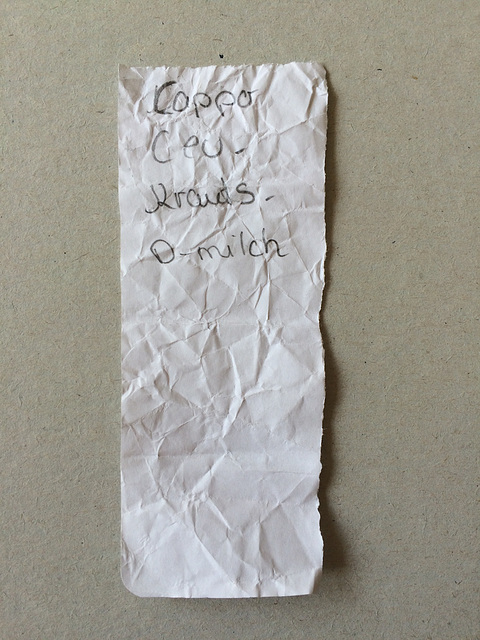 Cappo
Ceu-
Krauds-
O-milch